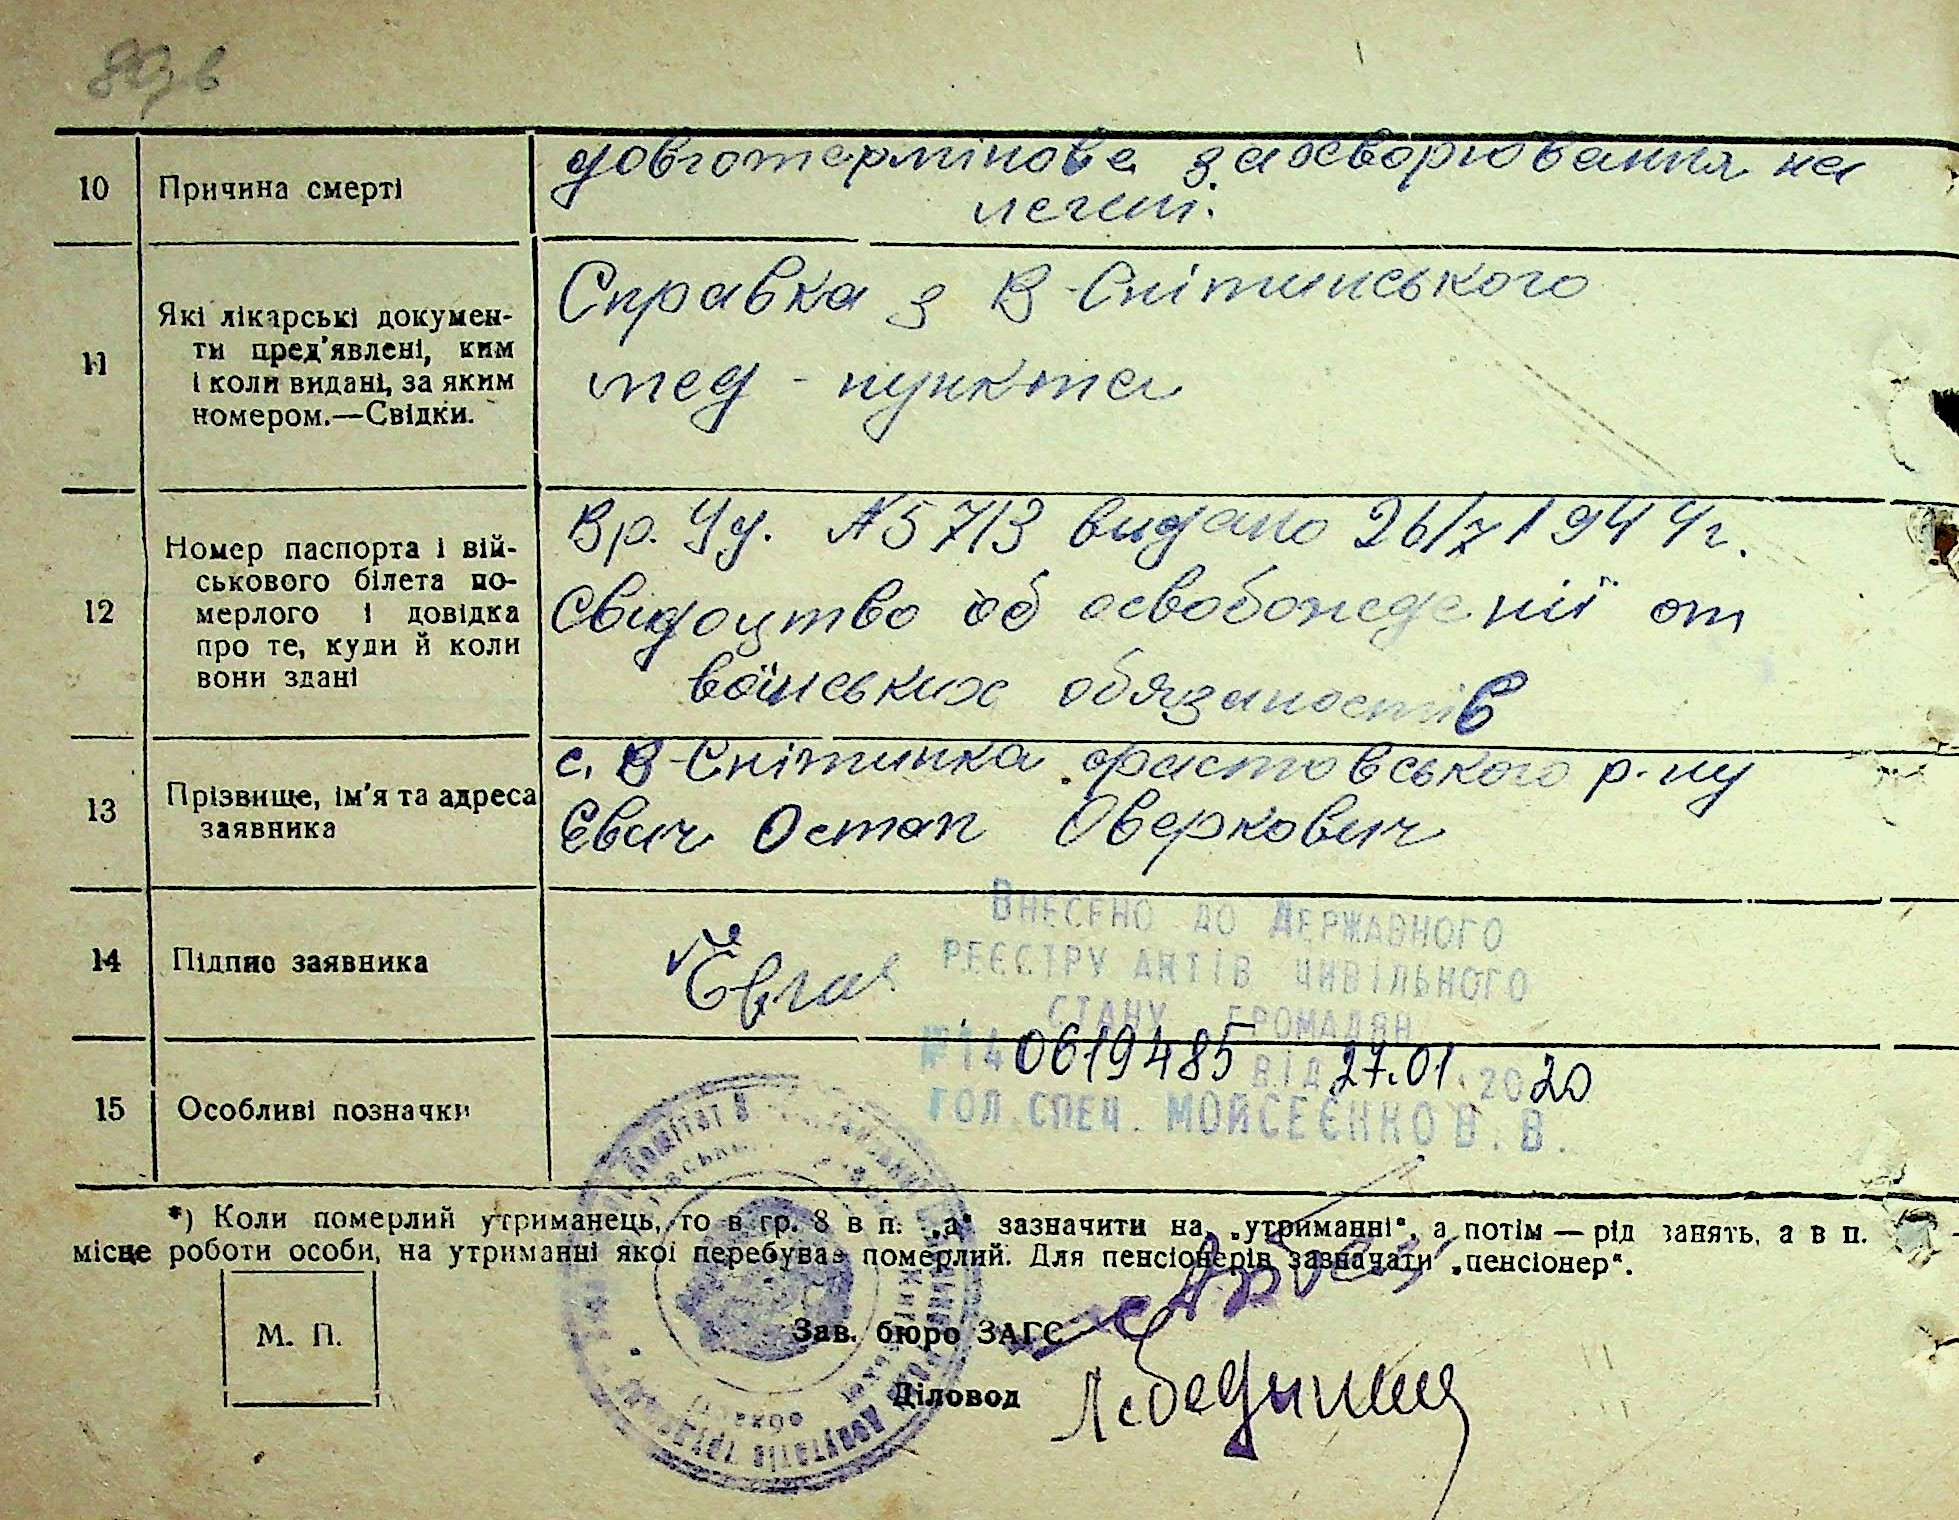 10 Причина смерті
довготермінове захворювання на
легені.
11 Які лікарські докумен-
ти пред'явлені, ким
і коли видані, за яким
номером.—Свідки.
Справка з В-Снітинського
мед-пункта
12 Номер паспорта і вій-
ськового білета по-
мерлого і довідка
про те, куди й коли
вони здані
Вр. Уд. №5713 видано 26/7 1944г.
Свідоцтво об освобожденії от
воїнських обязаностів
13 Прізвище, ім'я та адреса
заявника
с. В-Снітинка Фастовського р-ну
Євич Остап Оверкович
14 Підпис заявника
ВНЕСЕНО ДО ДЕРЖАВНОГО
РЕЄСТРУ АКТІВ ЦИВІЛЬНОГО
СТАНУ ГРОМАДЯН
№140619485 ВІД 27.01.2020
ГОЛ.СПЕЦ. МОЙСЕЄНКО В.В.
15 Особливі позначки
*) Коли померлий утриманець, то в гр. 8 в п. „а" зазначити на „утриманні", а потім — рід занять, а в п.
місце роботи особи, на утриманні якої перебував померлий. Для пенсіонерів зазначати „пенсіонер".
М. П.
Зав. бюро ЗАГС
Діловод